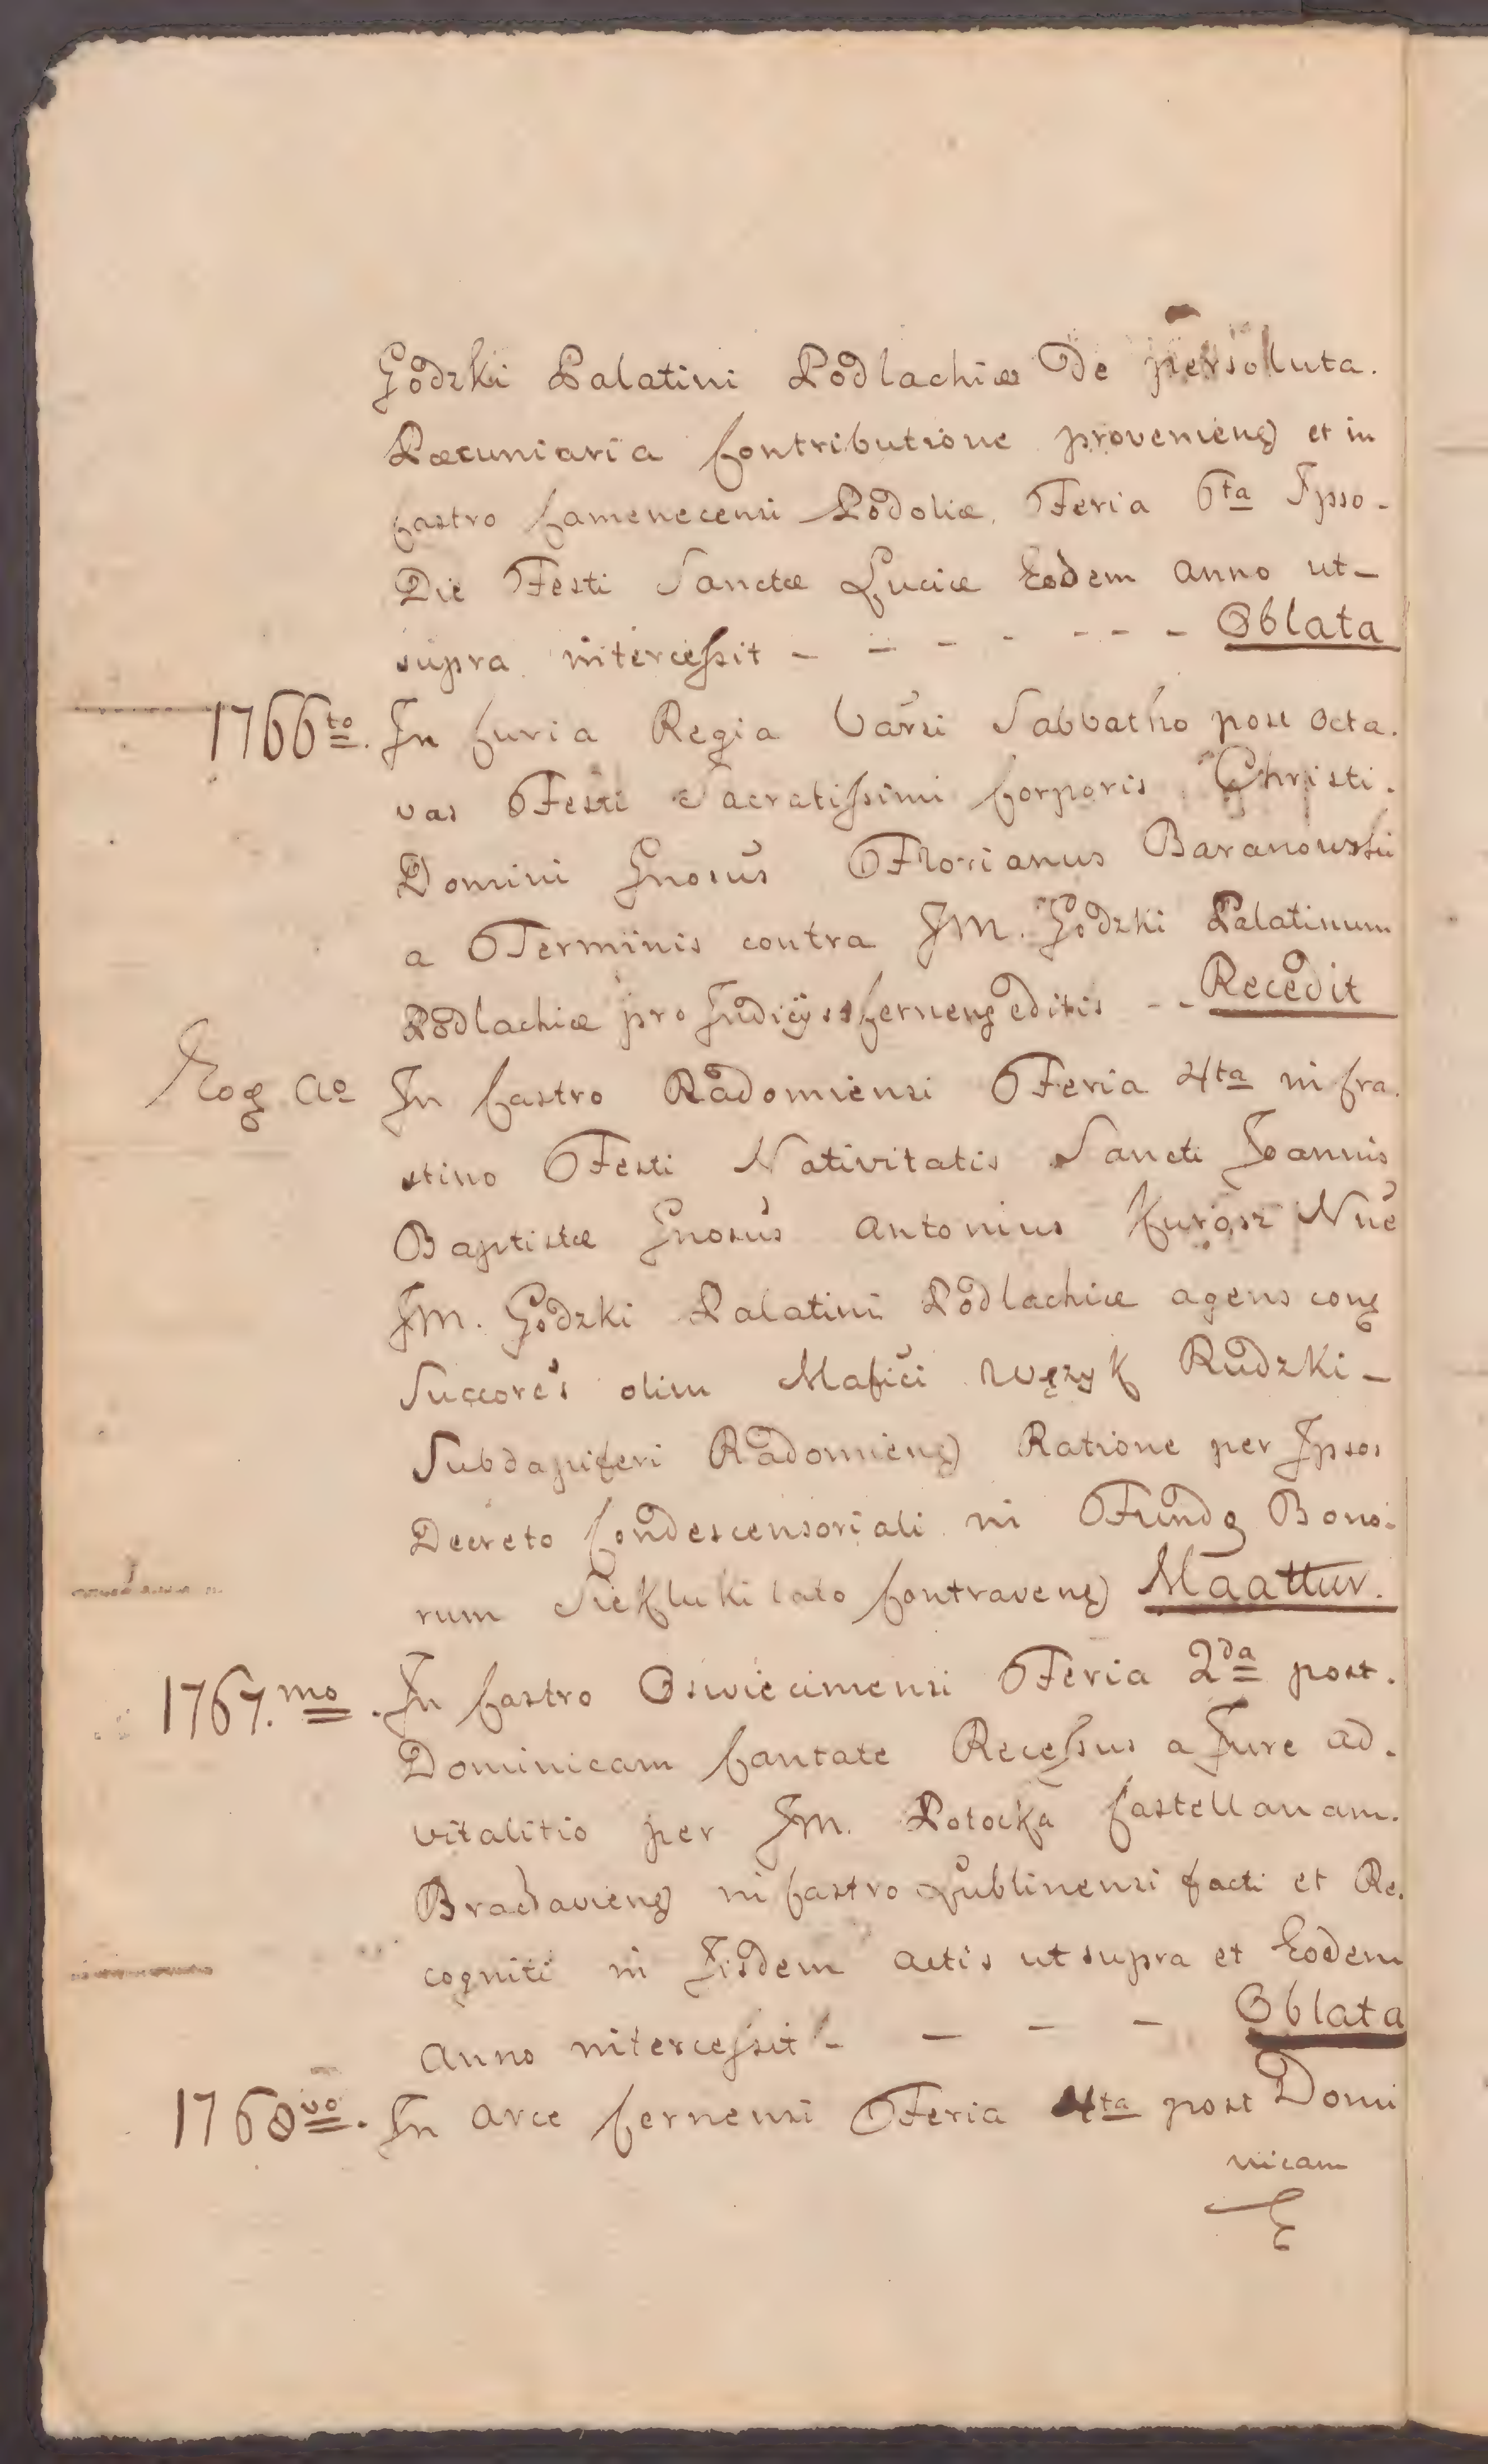 Godzki Palatini Podlachiæ De persoluta.
Pœcuniaria Contributione provenieng et in
Castro Camenecensi Podoliæ. Feria 6ta Ipso.
Die Festi Sanctæ Luciæ Eodem Anno ut-
supra intercessit - - - - - - - Oblata
1766to. In Curia Regia Varsi Sabbatho post Octa.
vas Festi Sacratissimi Corporis Christi.
Domini Gnosus Florianus Baranowski
a Terminis contra JM. Godzki Palatinum
Podlachiæ pro Judicijs Cerneng editis - - Recedit
Eog Ao In Castro Radomiensi Feria 4ta in Cra.
stino Festi Nativitatis Sancti Joannis
Baptistæ Gnosus Antonius Kurosz Nne
JM. Godzki Palatini Podlachiæ agens cong
Succores olim Mafici Węzyk Rudzki -
Subdapiferi Radomieng Ratione per Ipsos
Decreto Condescensoriali in Fundo Bono.
rum Siekluki lato Contraveng Maattur.
1767.mo. In Castro Oswiecimensi Feria 2da post.
Dominicam Cantate Recessus a Jure ad.
vitalitio per JM. Potocka Castellanam.
Braclavieng in Castro Lublinensi facti et Re.
cogniti in Iisdem Actis ut supra et Eodem
Anno intercessit - - - - Oblata
1768vo. In Arce Cernensi Feria 4ta post Domi
nicam